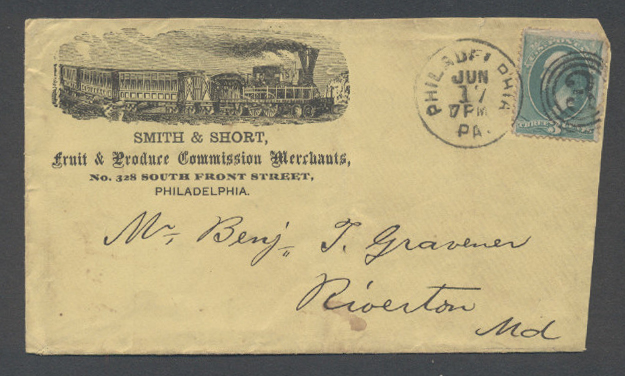 SMITH & SHORT,
Fruit & Produce Commission Merchants,
No. 328 SOUTH FRONT STREET,
PHILADELPHIA.
PHILADELPHIA
JUN
17
7PM
PA.
Mr. Benj. T. Gravener
Riverton
Md